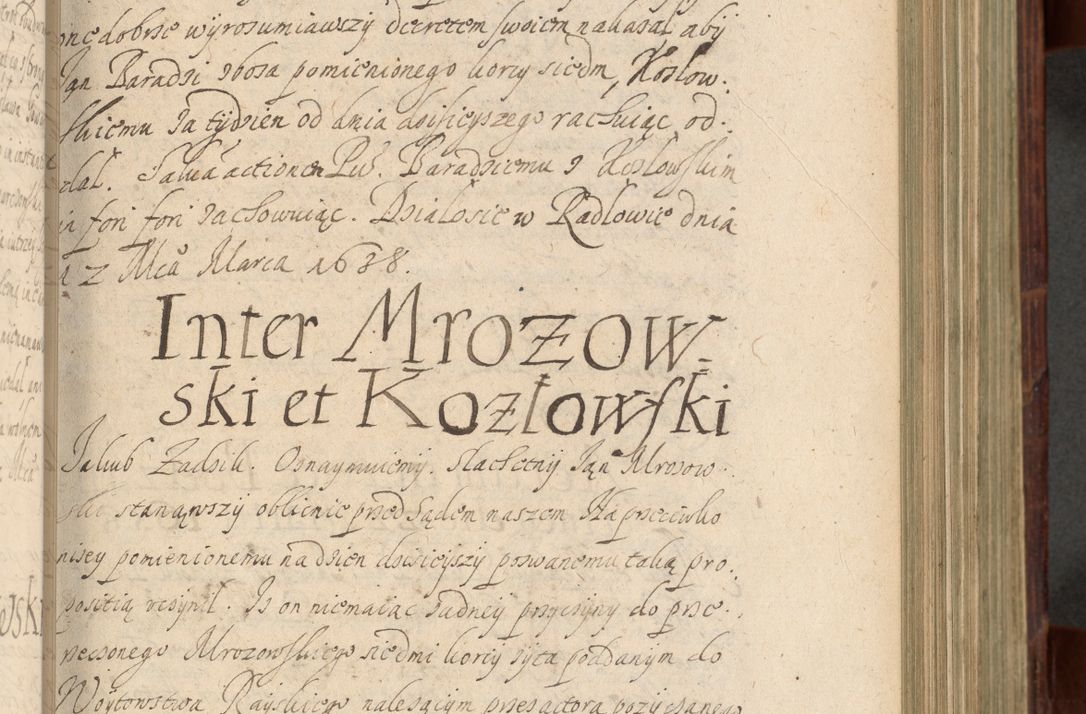 one dobrze wyrozumiawszy decretem swoiem nakazał aby
Jan Baradzi zboza pomienionego korcy siedm, Kozlow-
skiemu za tydzien od dnia dzisieyszego rachuiąc od-
dał. Salua actione Baradziemu y Kozłowskim
in fori fori zachowuiąc. Działosie w Radlowie dnia
Mca Marca 1638.
Inter Mrozow-
ski et Kozlowski
Jakub Zadzik. Oznaymuiemy. Slachetny Jan Mrozow-
ski stanąwszy oblicnie przed Sądem naszem Naprzeciwko
nizey pomienionemu nadzien dzisieyszy pozwanemu taką pro-
positią vczynił. Iz on niemaiąc zadney przyczyny do prze-
rzeczonego Mrozowskiego siedmi korcy zyta poddanym do
Woytowstwa Rayskiego nalezącym przez actora pozyczanego